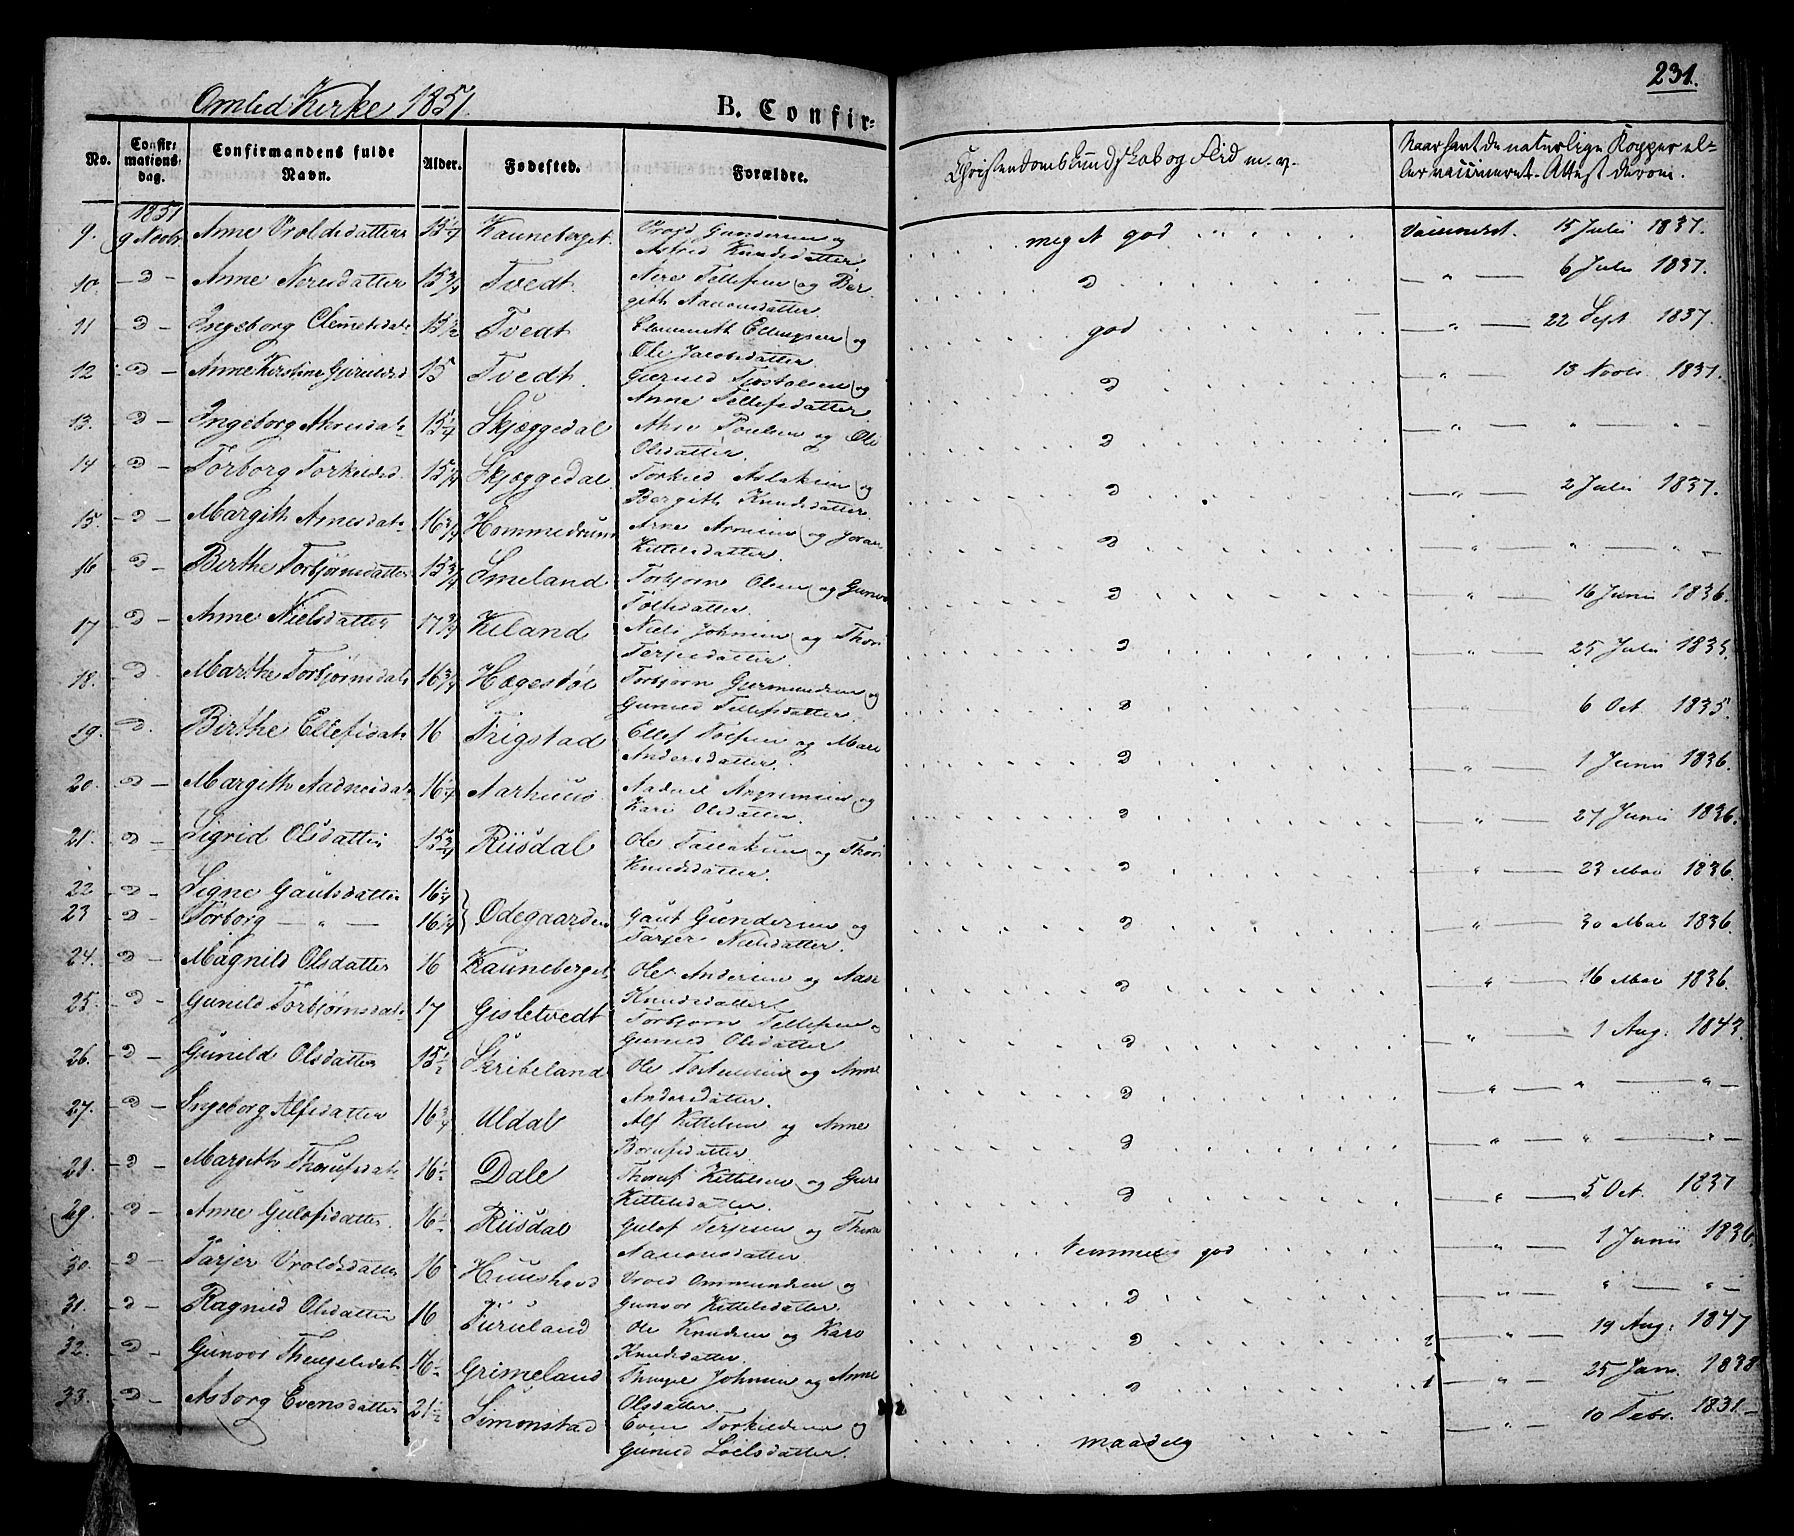 231.
Omlid Kirke 1851.
B. Confir-
No.
Confir-
mations-
dag.
Confirmandens fulde
Navn.
Alder.
Fødested.
Forældre.
Christendomskundskab og Flid m. v.
Naar havt de naturlige Kopper el-
ler vaccineret - Attest derom.
1851
9. 9 Novbr. Anne Vroldsdatter 15 1/4 Kauneberget. Vrold Gundersen og Astrid Knudsdatter. meget god Vaccineret. 15 Juli 1837.
10. - d - Anne Neresdatter 15 3/4 Tvedt. Nere Tellefsen og Ber- gith Aanonsdatter. d - " - 6 Juli 1837.
11 - d - Ingeborg Clemetsdatr 15 1/2 Tvedt Clemeth Ellingsen og Ole Jacobsdatter. god - " - 22 Sept 1837.
12 - d - Anne Kirstine Gjerulsd 15 Tvedt. Tjostolsen og Anne Tellefsdatter. d - " - 13 Novbr 1837.
13. - d - Ingeborg 15 1/4 Skjæggedal Poulsen og Ole Olsdatter. d - " - " -
14 - d - Torborg Torkildsd. 15 1/4 Skjæggedal. Torkild Aslaksen og Bergith Knudsdatter. d - " - 2 Juli 1837.
15. - d - Margith Arnesdatr 16 3/4 Hommedrum Arne Arnesen og Joran Kittelsdatter. d " - " -
16 - d - Birthe Torbjørnsdatter 15 3/4 Smeland Torbjørn Olsen og Gunvor Tolfsdatter. d - " - 16 Juni 1836.
17 - d - Anne Nielsdatter 17 3/4 Kiland Niels Johnsen og Thori Terjesdatter. d - " - 25 Juli 1835.
18. - d - Marthe Torbjørnsdatr 16 3/4 Hægestøl Torbjørn Germundsen og Gunild Tellefsdatter. d - " - 6 Oct. 1835.
19. - d. Birthe Ellefsdatr 16 Trigstad Ellef Tolfsen og Mari Andersdatter. d - " - 1 Juni 1836.
20. - d - Margith Aadnesdatr 16 1/4 Aarhuus. Aadne Asgrimsen og Kari Olsdatter. d - " - 27 Juni 1836.
21. d - Sigrid Olsdatter 15 3/4 Riisdal Ole Tallaksen og Thori Knudsdatter. d - " - 23 Mai 1836.
22 - d - Signe Gautsdatter 16 1/4
23 - d - Torborg - " - 16 1/4 Ødegaarden Gaut Gundersen og Tarjer Nielsdatter. d - 30 Mai 1836.
24. - d - Magnild Olsdatter 16 Kauneberget Ole Andersen og Aase Knudsdatter. d - " - 16 Mai 1836.
25. - d - Gunild Torbjørnsdatr 17 Gisletvedt Torbjørn Tellefsen og Gunild Olsdatter. d - " - 1 Aug: 1843.
26. - d - Gunild Olsdatter 15 1/2 Skribeland Ole Torstensen og Anne Andersdatter. d " - " -
27. - d - Ingeborg Alfsdatter 16 3/4 Uldal Alf Kittelsen og Anne Borufsdatter. d - " - " - " -
28. - d - Margith Thorufsdatr 16 1/2 Dale Thoruf Kittelsen og Guro Kittelsdatter. d - " - 5 Oct. 1837
29. - d - Anne Gulofsdatter. 16 1/2 Riisdal Gulof Terjesen og Thora Aanonsdatter temmelig god - " - 1 Juni 1836
30. - d - Tarjer Vroldsdatter 16 Huushovd Vrold Ommundsen og Gunvor Kittelsdatter. d - " - " - " -
31. - d - Ragnild Olsdatter 16 Furuland Ole Knudsen og Kari Knudsdatter. d 2 - " - 19 Aug: 1847
32. - d - Gunvor Thengelsdatr 16 1/2 Grimeland Thengel Johnsen og Anne Olsdatter. d 1 - " - 25 Jan. 1838
33. - d - Asborg Evensdatter 21 1/2 Simonstad Even Torkildsen og Gunild Loelsdatter. maadelig - " - 10 Febr. 1831 -